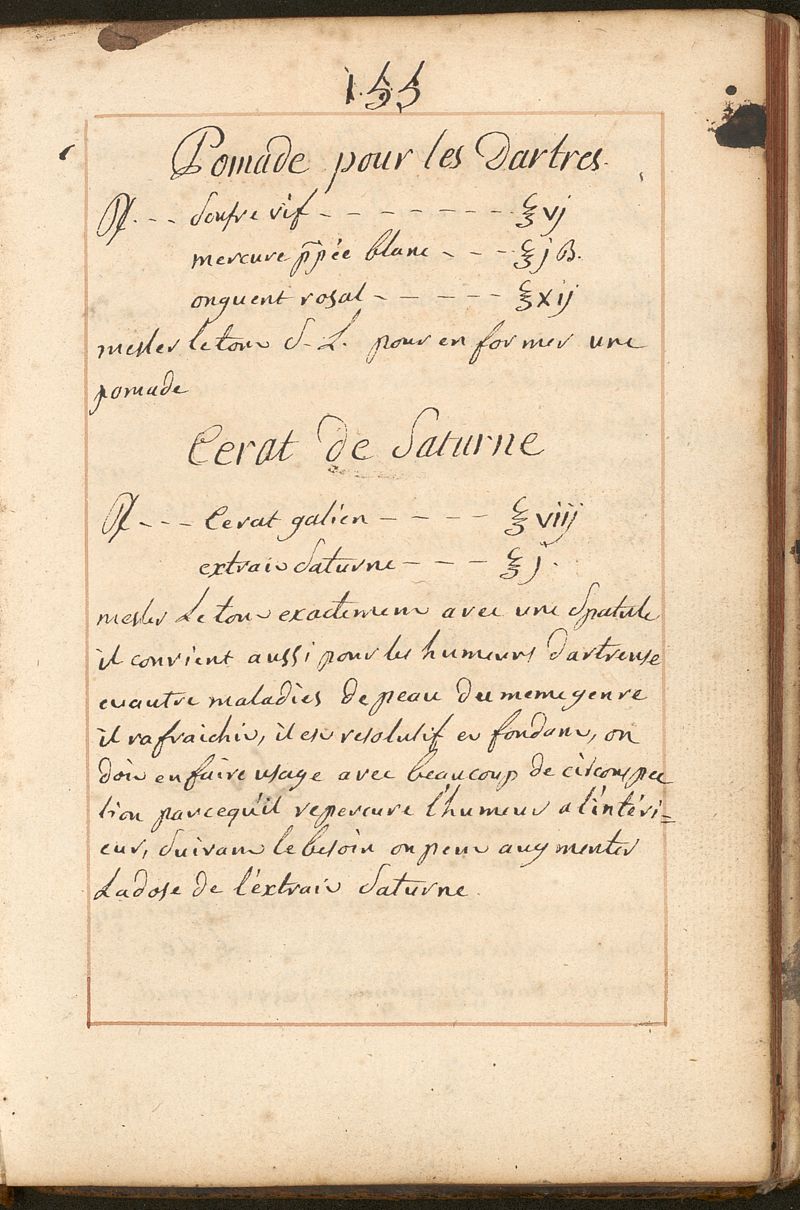 155
Pomade pour les Dartres.
℞. --- Soufre vif -------- ℥ vj
mercure p̄pée blanc --- ℥ j ß.
onguent rosat ----- ℥ xij
mesler le tout S. L. pour en former une
pomade
Cerat de Saturne
℞ --- Cerat galien ---- ℥ viij
extrait Saturne --- ℥ j.
mesler Le tout exactement avec une Spatule
il convient aussi pour les humeurs Dartreuse
et autre maladies de peau Du meme genre
il rafraichit, il est resolutif et fondant, on
doit en faire usage avec beaucoup de circonspec
tion parcequ'il repercute l'humeur a l'intéri=
eur, Suivant le besoin on peut augmenter
La dose de l'extrait Saturne.